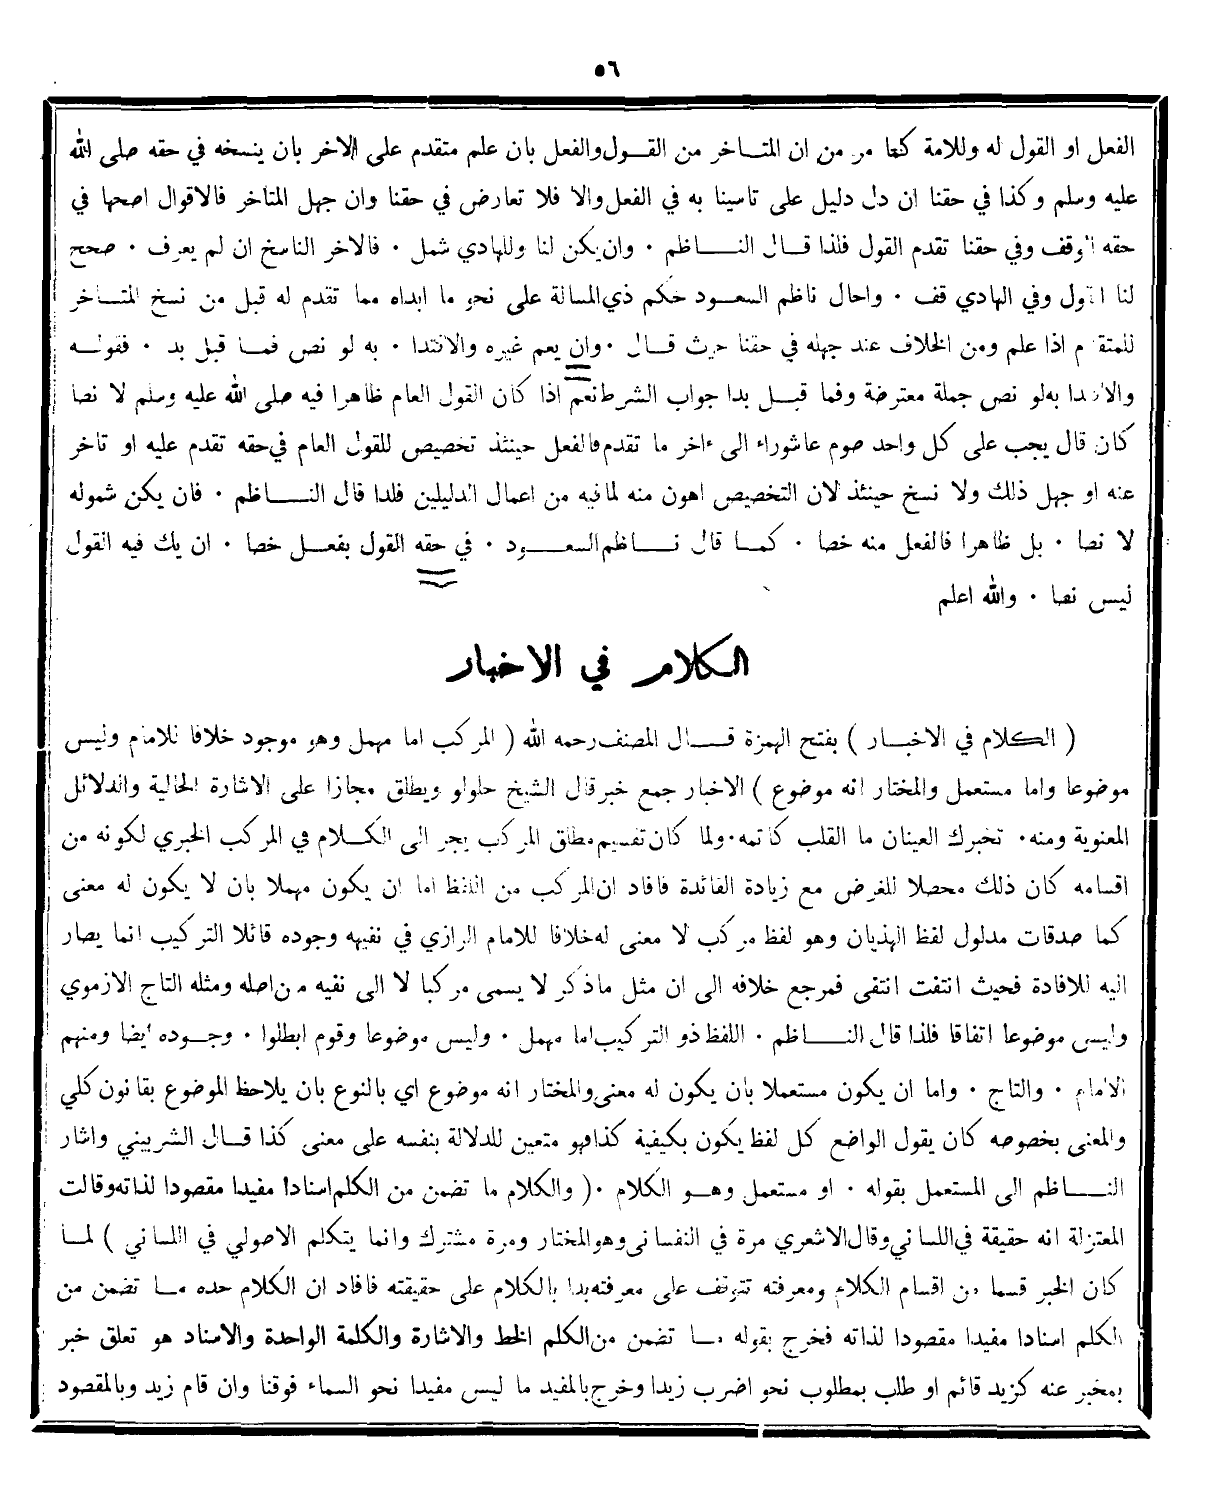 ٥٦
الفعل او القول له وللامة كما مر من ان المتاخر من القول والفعل بان علم متقدم على الاخر بان ينسخه في حقه صلى الله
عليه وسلم وكذا في حقنا ان دل دليل على تاسينا به في الفعل والا فلا تعارض في حقنا وان جهل المتاخر فالاقوال اصحها في
حقه الوقف وفي حقنا تقدم القول فلذا قال الناظم ٠ وان يكن لنا وللهادي شمل ٠ فالاخر الناسخ ان لم يعرف ٠ صحح
لنا القول وفي الهادي قف ٠ واحال ناظم السعود حكم ذي المسالة على نحو ما ابداه مما تقدم له قبل من نسخ المتاخر
للمتقدم اذا علم ومن الخلاف عند جهله في حقنا حيث قال ٠ وان يعم غيره والاقتدا ٠ به لو نص فما قبل بد ٠ فقوله
والاقتدا به لو نص جملة معترضة وفما قبل بدا جواب الشرط نعم اذا كان القول العام ظاهرا فيه صلى الله عليه وسلم لا نصا
كان قال يجب على كل واحد صوم عاشوراء الى ءاخر ما تقدم فالفعل حينئذ تخصيص للقول العام في حقه تقدم عليه او تاخر
عنه او جهل ذلك ولا نسخ حينئذ لان التخصيص اهون منه لما فيه من اعمال الدليلين فلذا قال الناظم ٠ فان يكن شموله
لا نصا ٠ بل ظاهرا فالفعل منه خصا ٠ كما قال ناظم السعود ٠ في حقه القول بفعل خصا ٠ ان يك فيه القول
ليس نصا ٠ والله اعلم
الكلام في الاخبار
( الكلام في الاخبار ) بفتح الهمزة قال المصنف رحمه الله ( المركب اما مهمل وهو موجود خلافا للامام وليس
موضوعا واما مستعمل والمختار انه موضوع ) الاخبار جمع خبر قال الشيخ حلولو ويطلق مجازا على الاشارة الحالية والدلائل
المعنوية ومنه ٠ تخبرك العينان ما القلب كاتمه ٠ ولما كان تقسيم مطلق المركب يجر الى الكلام في المركب الخبري لكونه من
اقسامه كان ذلك محصلا للغرض مع زيادة الفائدة فافاد ان المركب من اللفظ اما ان يكون مهملا بان لا يكون له معنى
كما صدقات مدلول لفظ الهذيان وهو لفظ مركب لا معنى له خلافا للامام الرازي في نفيه وجوده قائلا التركيب انما يصار
اليه للافادة فحيث انتفت انتفى فمرجع خلافه الى ان مثل ما ذكر لا يسمى مركبا لا الى نفيه من اصله ومثله التاج الارموي
وليس موضوعا اتفاقا فلذا قال الناظم ٠ اللفظ ذو التركيب اما مهمل ٠ وليس موضوعا وقوم ابطلوا ٠ وجوده ايضا ومنهم
الامام ٠ والتاج ٠ واما ان يكون مستعملا بان يكون له معنى والمختار انه موضوع اي بالنوع بان يلاحظ الموضوع بقانون كلي
والمعنى بخصوصه كان يقول الواضع كل لفظ يكون بكيفية كذا فهو متعين للدلالة بنفسه على معنى كذا قال الشربيني واشار
الناظم الى المستعمل بقوله ٠ او مستعمل وهو الكلام ٠ ( والكلام ما تضمن من الكلم اسنادا مفيدا مقصودا لذاته وقالت
المعتزلة انه حقيقة في اللساني وقال الاشعري مرة في النفساني وهو المختار ومرة مشترك وانما يتكلم الاصولي في اللساني ) لما
كان الخبر قسما من اقسام الكلام ومعرفته تتوقف على معرفته بدا بالكلام على حقيقته فافاد ان الكلام حده ما تضمن من
الكلم اسنادا مفيدا مقصودا لذاته فخرج بقوله ما تضمن من الكلم الخط والاشارة والكلمة الواحدة والاسناد هو تعلق خبر
بمخبر عنه كزيد قائم او طلب بمطلوب نحو اضرب زيدا وخرج بالمفيد ما ليس مفيدا نحو السماء فوقنا وان قام زيد وبالمقصود